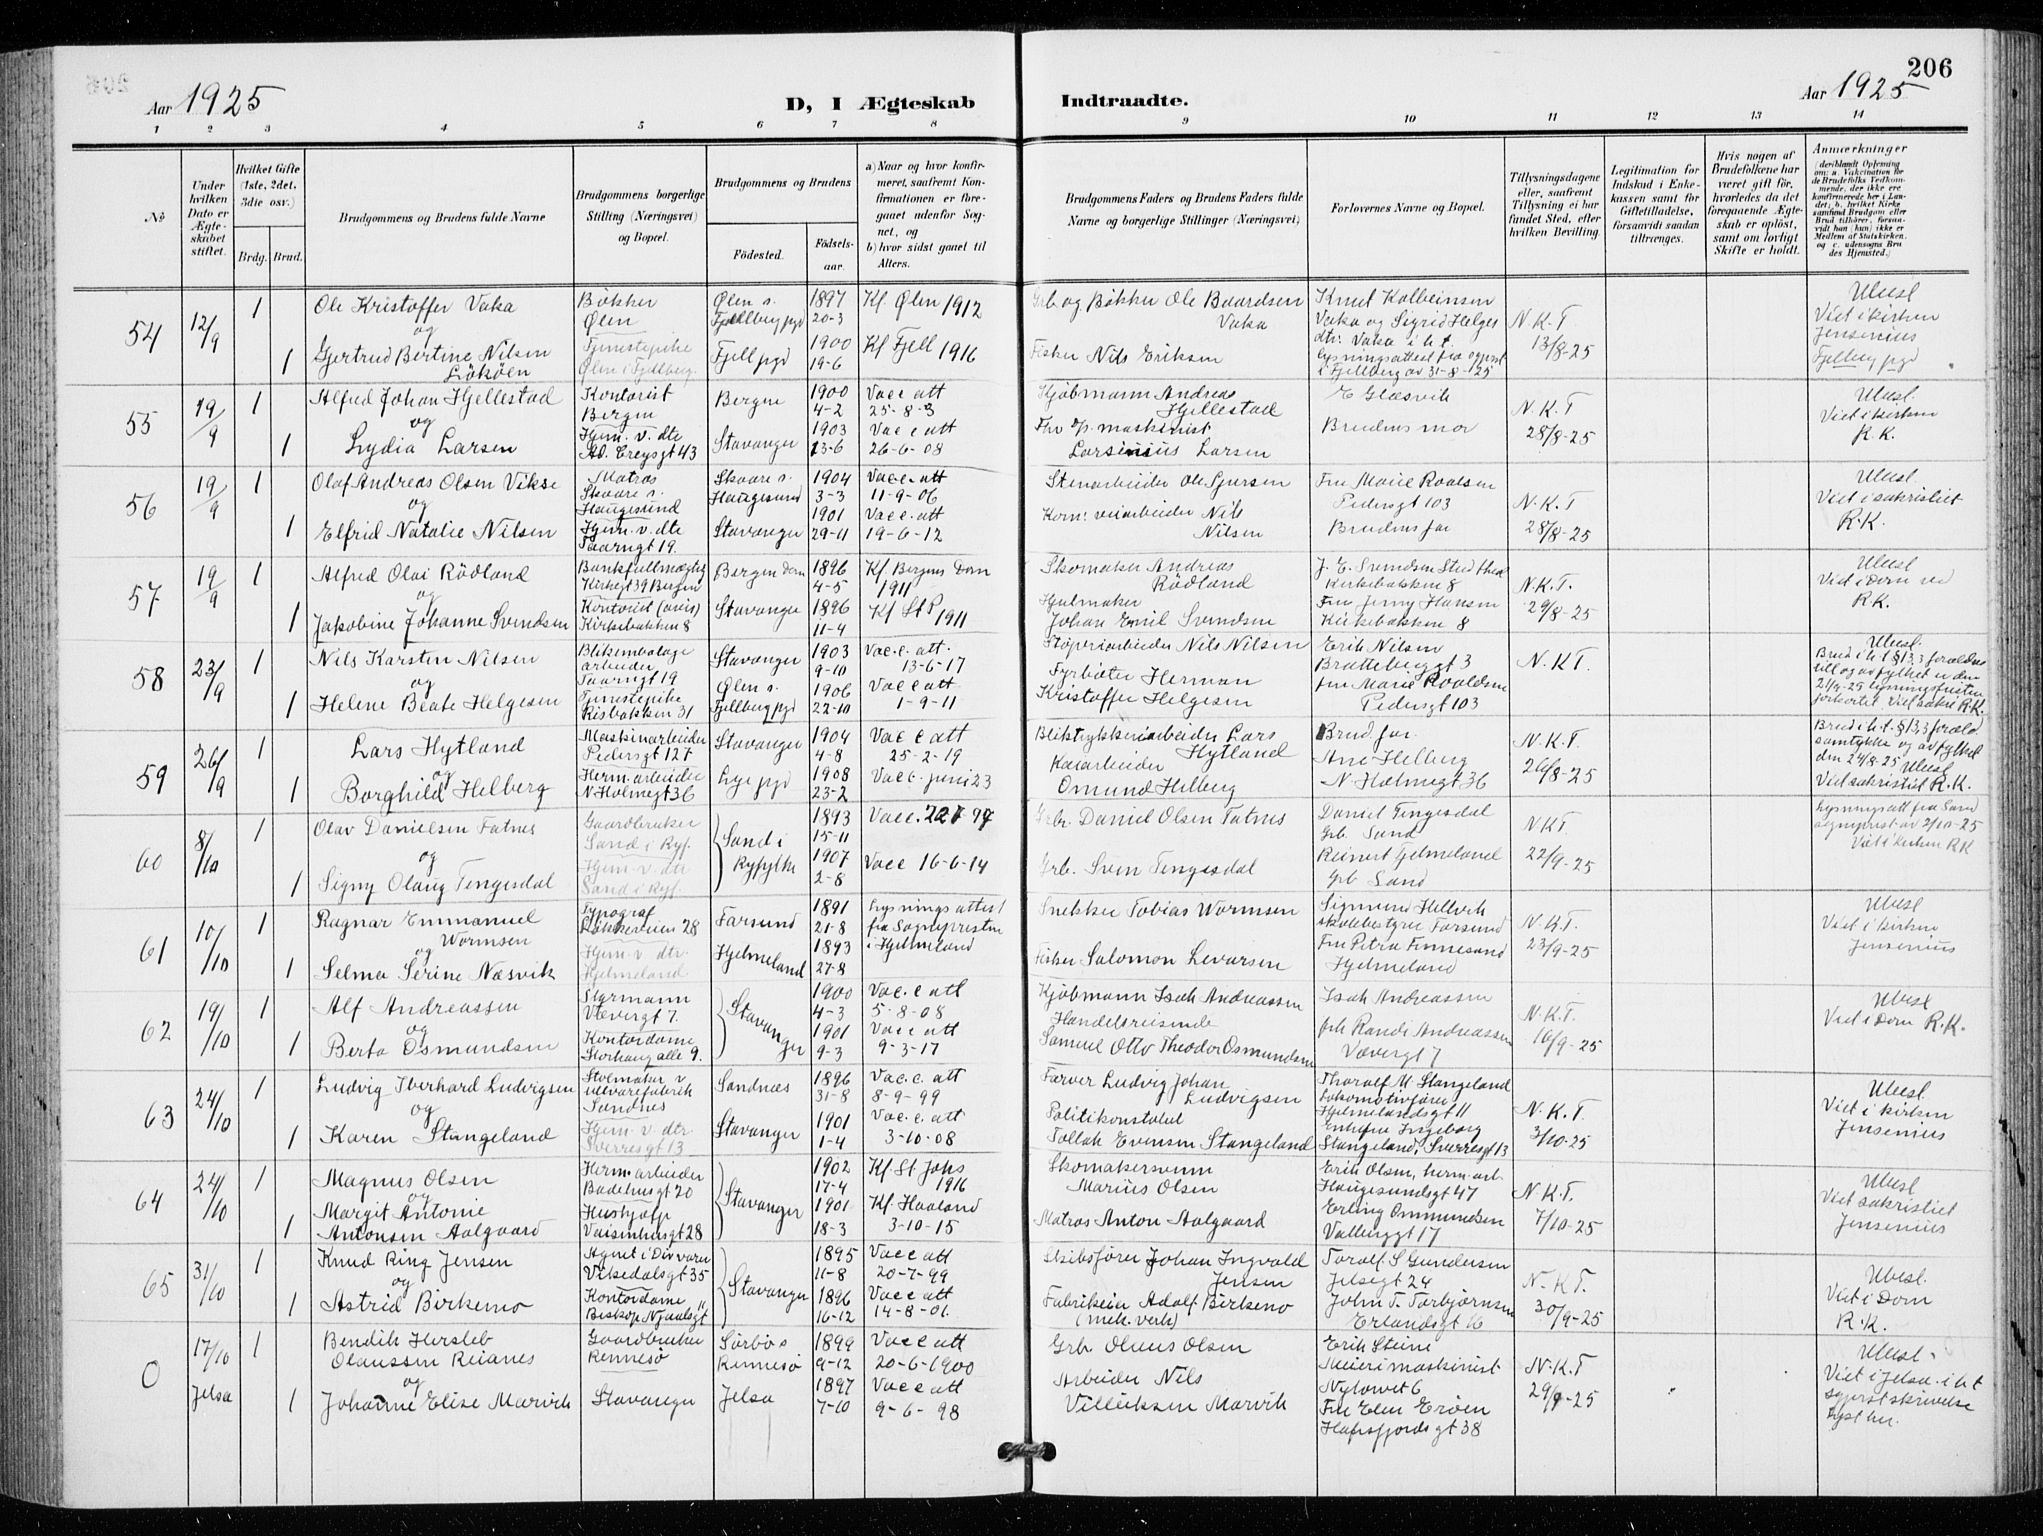 206
Aar 1925
D, I Ægteskab Indtraadte.
Aar 1925
1 2 3 4 5 6 7 8 9 10 11 12 13 14
No
Under hvilken Dato er Ægteskabet stiftet.
Hvilket Gifte (1ste, 2det, 3die osv.)
Brdg. Brud.
Brudgommens og Brudens fulde Navne
Brudgommens borgerlige Stilling (Næringsvei) og Bopæl.
Brudgommens og Brudens
Födested.
Födselsaar.
a) Naar og hvor konfirmeret, saafremt Konfirmationen er foregaaet udenfor Sognet, og
b) hvor sidst gaaet til Alters.
Brudgommens Faders og Brudens Faders fulde Navne og borgerlige Stillinger (Næringsvei)
Forlovernes Navne og Bopæl.
Tillysningsdagene eller, saafremt Tillysning ei har fundet Sted, efter hvilken Bevilling.
Legitimation for Indskud i Enkekassen samt for Giftetilladelse, forsaavidt saadan tiltrænges.
Hvis nogen af Brudefolkene har været gift för, hvorledes da det foregaaende Ægteskab er oplöst, samt om lovligt Skifte er holdt.
Anmærkninger
(deriblandt Oplysning om: a. Vaccination for de Brudefolks Vedkommende, der ikke ere konfirmerede her i Landet; b. hvilket Kirkesamfund Brudgom eller Brud tilhörer, forsaavidt han (hun) ikke er Medlem af Statskirken, og c. udensogns Brudes Hjemsted.)
54 12/9 1
Ole Kristoffer Vaka
og
1 Gjertrud Bertine Nilsen Lököen
Bøkker
Ølen
Tjenestepike
Ølen i Fjellberg
Ølen s.
Fjellberg pgd
Fjell pgd
1897
20-3
1900
19-6
Kf Ølen 1912
Kf Fjell 1916
Grb og Bøkker Ole Baardsen Vaka
Fisker Nils Eriksen
Knut Kolbeinsen
Vaka og Sigrid Helges
dtr. Vaka i h.t.
lysningsattest fra sognpr
i Fjellberg av 31-8-25
N.K.T.
13/8-25
Ubesl
Viet i kirken
Jensenius
Fjelberg pgd
55 19/9 1
Alfred Johan Hjellestad
og
1 Lydia Larsen
Kontorist
Bergen
Hjem. v. dtr
Bergen
Stavanger
1900
4-2
1903
13-6
Vacc att
25-8-3
Vacc att
26-6-08
Kjøbmann Andreas Hjellestad
Larsinius Larsen
E Glæsvik
Brudens mor
N.K.T
28/8-25
Ubesl.
Viet i kirken
R.K.
56 19/9 1
Olaf Andreas Olsen Vikse
og
1 Elfrid Natalie Nilsen
Matros
Skaare s.
Haugesund
Hjem. v. dtr
Taarngt 19.
Skaare s.
Haugesund
Stavanger
1904
3-3
1901
29-11
Vacc. att
11-9-06
Vacc. att
19-6-12
Stenarbeider Ole Sjursen
Nils Nilsen
Fru Marie Roalsen
Pedersgt 103
Brudens far
N.K.T
28/8-25
Ubesl
Viet i sakristiet
R.K.
57 19/9 1
Alfred Olai Rödland
og
1 Jakobine Johanne Svendsen
Bankfullmægtig
Kirkegt 39 Bergen
Kontorist (avis)
Kirkebakken 8
Bergen Dom
Stavanger
1896
4-5
1896
11-4
Kf Bergens Dom
1911
Kf St P. 1911
Skomaker Andreas Rödland
Hjulmaker
Johan Emil Svendsen
J. E. Svendsen
Kirkebakken 8
Fru Jenny Hansen
Kirkebakken 8
N.K.T.
29/8-25
Ubesl
Viet i Dom ved
R.K.
58 23/9 1
Nils Karsten Nilsen
og
1 Helene Beate Helgesen
Blikemballage
arbeider
Taarngt 19
Tjenestepike
Risbakken 31
Stavanger
Ølen s.
Fjellberg pgd
1903
9-10
1906
22-10
Vac.c. att.
13-6-17
Vacc att
1-9-11
Støperiarbeider Nils Nilsen
Fyrbøter Herman
Kristoffer Helgesen
Erik Nilsen
Brattebergt 3
Fru Marie Roaldsen
Pedersgt 103
N.KT.
Ubesl.
Brud i h.t. §13,3 forældres
till og av fylket er den
21/9-25 lysningsfristen
forkortet. Viet sakr. R.K.
59 26/9 1
Lars Hytland
og
1 Borghild Helberg
Maskinarbeider
Pedersgt 127
Herm. arbeider
N. Holmegt 36
Stavanger
Lye pgd
1904
4-8
1908
23-2
Vacc att
25-2-19
Vacc. juni 23
Bliktrykkeriarbeider Lars Hytland
Kaiarbeider
Omund Helberg
Brud.far.
Ane Helberg
N Holmegt 36
N.K.T.
26/8-25
Brud i h.t. §13,3 foræld.
samtykke og av fylket
den 24/8-25 Ubesl
Viet sakristiet R.K.
60 8/10 1
Olav Danielsen Fatnes
og
1 Signy Olaug Tengesdal
Gaardbruker
Sand i Ryf.
Hjem. v. dtr
Sand i Ryf.
Sand i Ryfylke
1893
15-11
1907
2-8
Vacc 16-6-14
Grbr. Daniel Olsen Fatnes
Grb. Sven Tengesdal
Daniel Tengesdal
Grb. Sand
Reinert Tjelmeland
Grb Sand
NKT.
22/9-25
Lysningsatt fra Sand
sogneprest av 2/10-25
Viet i kirken R.K
61 10/10 1
Ragnar Emmanuel Wormsen
og
1 Selma Serine Næsvik
Typograf
Hjem. v dtr.
Hjelmeland
Farsund
Hjelmeland
1891
21-8
1893
27-8
Lysningsattest
fra Sogneprsten
i Hjelmeland
Snekker Tobias Wormsen
Fisker Salomon Levarsen
Sigmund Hellvik
skolebestyrer Farsund
Fru Petra Finnesand
Hjelmeland
N.K.T.
23/9-25
Ubesl
Viet i kirken
Jensenius
62 19/10 1
Alf Andreassen
og
1 Berta Osmundsen
Styrmann
Vævergt 7.
Kontordame
Storhaug alle 9.
Stavanger
1900
4-3
1901
9-3
Vac.c att
5-8-08
Vacc att
9-3-17
Kjøbmann Isak Andreassen
Handelsreisende
Samuel Otto Theodor Osmundsen
Isak Andreassen
frk Randi Andreassen
Vævergt 7
N.K.T.
16/9-25
Ubesl
Viet i Dom R.K.
63 24/10 1
Ludvig Eberhard Ludvigsen
og
1 Karen Stangeland
Stolmaker v
uldvarefabrik
Sandnes
Hjem. v. dtr.
Sverresgt 13
Sandnæs
Stavanger
1896
31-8
1901
1-4
Vac.c. att
8-9-99
Vac.c. att
3-10-08
Farver Ludvig Johan Ludvigsen
Politikonstabel
Tollak Evensen Stangeland
Thoralf M. Stangeland
Lokomotivfører
Hjelmelandsgt 11
Enkefru Ingeborg
Stangeland, Sverresgt 13
N.K.T.
3/10-25
Ubesl.
Viet i kirken
Jensenius
64 24/10 1
Magnus Olsen
og
1 Margit Antonie
Antonsen Aalgaard
Herm. arbeider
Badehusgt 20
Hushjelp
Vaisenhusgt 28
Stavanger
1902
17-4
1901
18-3
Kf St Johs
1916
Kf. Haaland
3-10-15
Skomakersvenn
Marius Olsen
Matros Anton Aalgaard
Erik Olsen, herm. arb.
Haugesundsgt 47
Erling Ommundsen
Vallbergt 17
N.K.T.
7/10-25
Ubesl
Viet sakristiet
Jensenius
65 31/10 1
Knud Ring Jensen
og
1 Astrid Birkemo
Agent i Div varer
Vikedalsgt 35
Kontordame
Biskop Njaalsgt 11
Stavanger
1895
11-8
1896
16-12
Vacc att
20-7-99
Vacc att
14-8-01.
Skibsfører Johan Ingvald Jensen
Fabrikeier Adolf Birkemo
(mek. verk)
Toralf S Gundersen
Jelsegt 24
John T. Torbjørnsen
Erlandsgt 16
N.K.T.
30/9-25
Ubesl.
Viet i Dom
R.K.
0 17/10 1
Jelsa
Bendik Hersleb
Olaussen Reianes
og
1 Johanne Elise Marvik
Gaardbruker
Rennesø
Stavanger
Sørbø s
Rennesø
Jelsa
1899
9-12
1897
7-10
Vacc att
20-6-1900
Vacc att
9-6-98
Grb Olaus Olsen
Arbeider Nils
Villeiksen Marvik
Erik Steine
Meierimaskinist
Nylovet 6
Fru Elen Erøen
Hafrsfjordsgt 38
N.K.T
29/9-25
Ubesl.
Viet i Jelsa. i h.t
sognprstskrivelse
Lyst her.